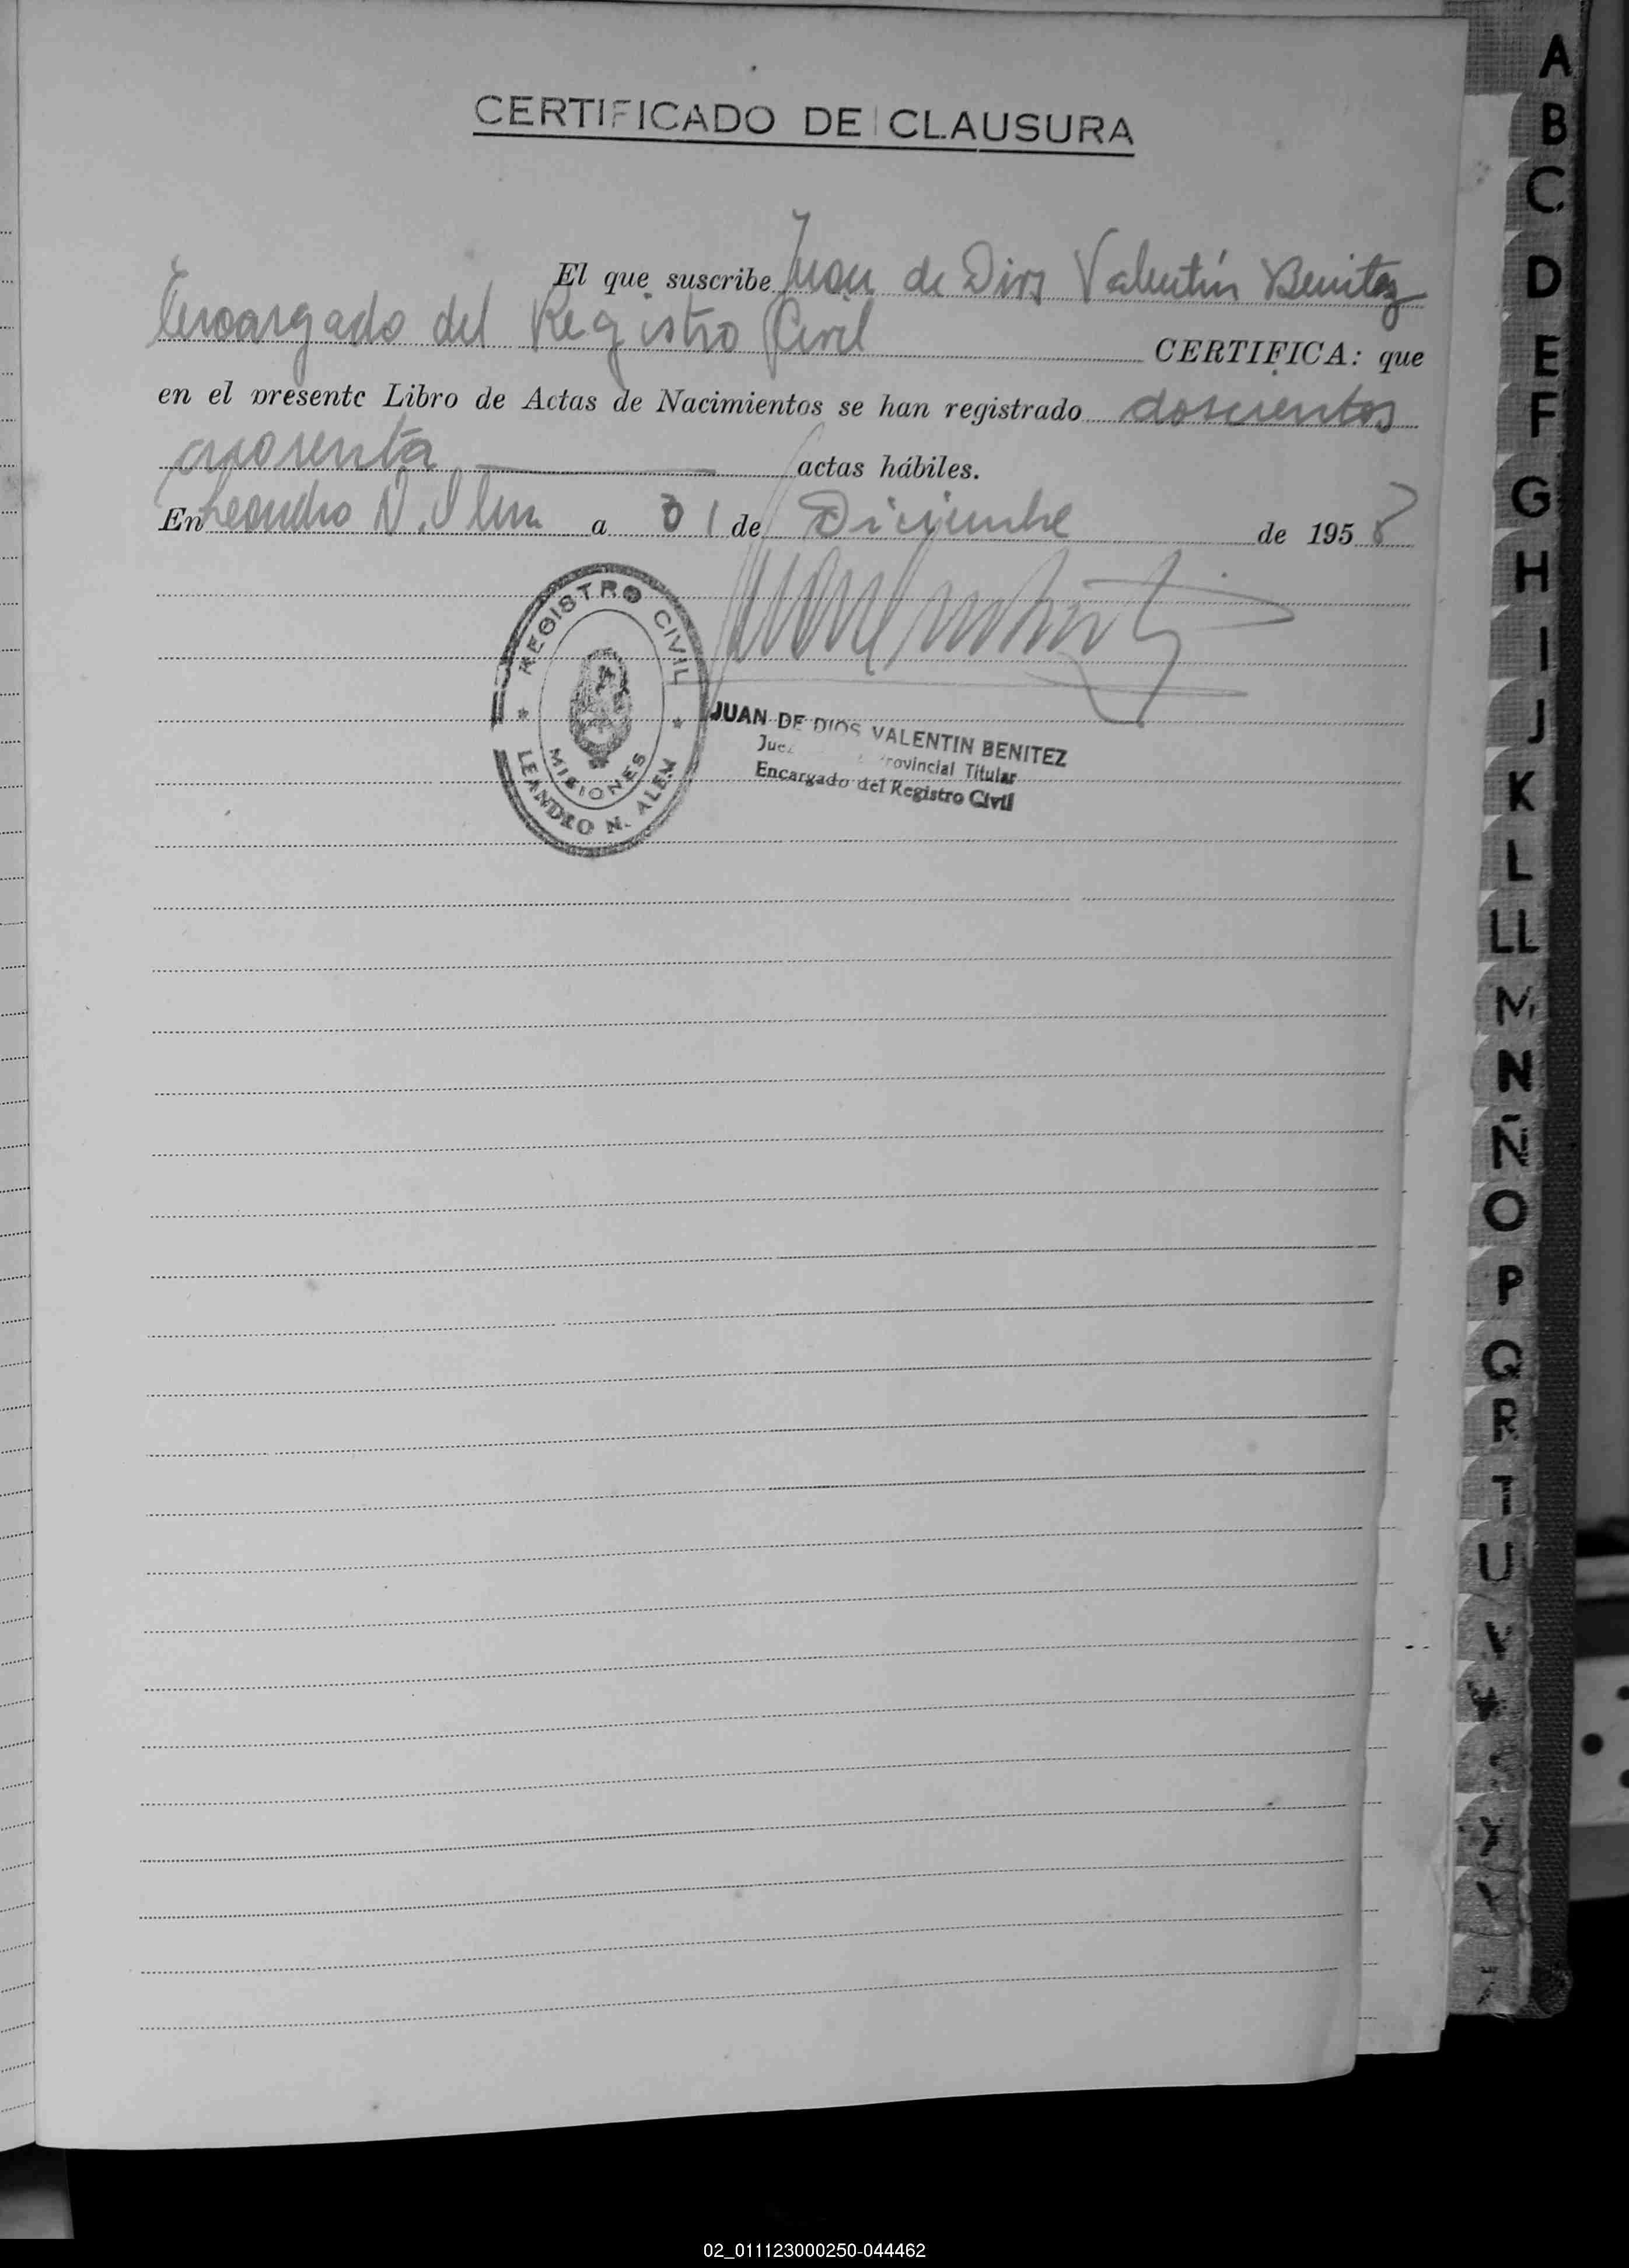 CERTIFICADO DE CLAUSURA
El que suscribe Juan de Dios Valentín Benitez
Encargado del Registro Civil CERTIFICA: que
en el presente Libro de Actas de Nacimientos se han registrado doscientos
cuarenta actas hábiles.
En Leandro N. Alem a 31 de Diciembre de 1958
REGISTRO CIVIL
MISIONES
LEANDRO N. ALEM
JUAN DE DIOS VALENTIN BENITEZ
Juez rovincial Titular
Encargado del Registro Civil
A
B
C
D
E
F
G
H
I
J
K
L
LL
M
N
Ñ
O
P
Q
R
T
U
V
Y
02_011123000250-044462